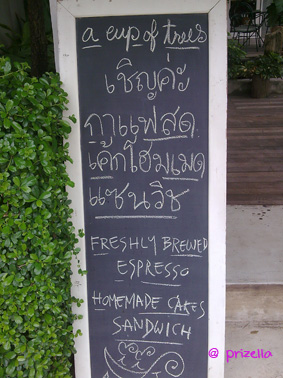 a cup of trees
เชิญค่ะ
กาแฟสด
เค้กโฮมเมด
แซนวิช
FRESHLY BREWED
ESPRESSO
HOMEMADE CAKES
SANDWICH
@ prizella